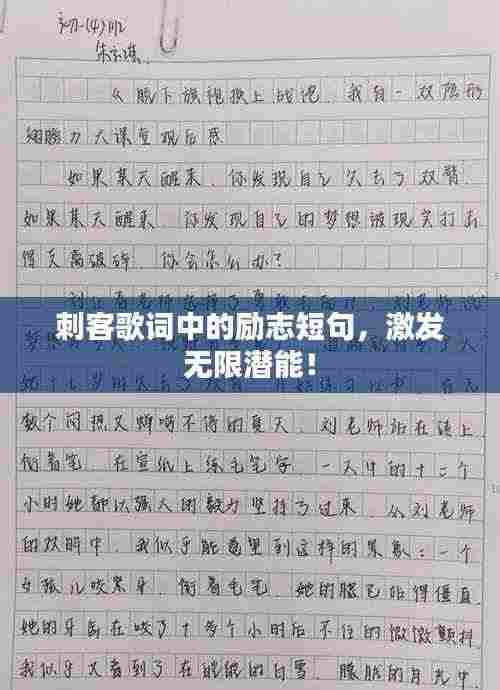 初一(4)班
《脱下旗袍换上战袍，我有一双隐形
翅膀》大课堂观后感
如果某天醒来，你发现自己失去了双臂，
如果某天醒来，你发现自己的梦想被现实打击
得支离破碎，你会怎么办？
刺客歌词中的励志短句，激发
无限潜能！
数个闷热又蝉鸣不停的夏天，刘老师站在凳上，
衔着笔，在宣纸上练毛笔字，一天中的十二个
小时她都以强人的毅力坚持了过来，从刘老师
的双眸中，我似乎能看到这样的景象：一个
女孩儿咬紧牙，衔着毛笔，她的腿已站得僵直
她的牙齿在咬了十多个小时后不住的微微颤抖
我似乎又看到了在皑皑的白雪、朦胧的月光中，